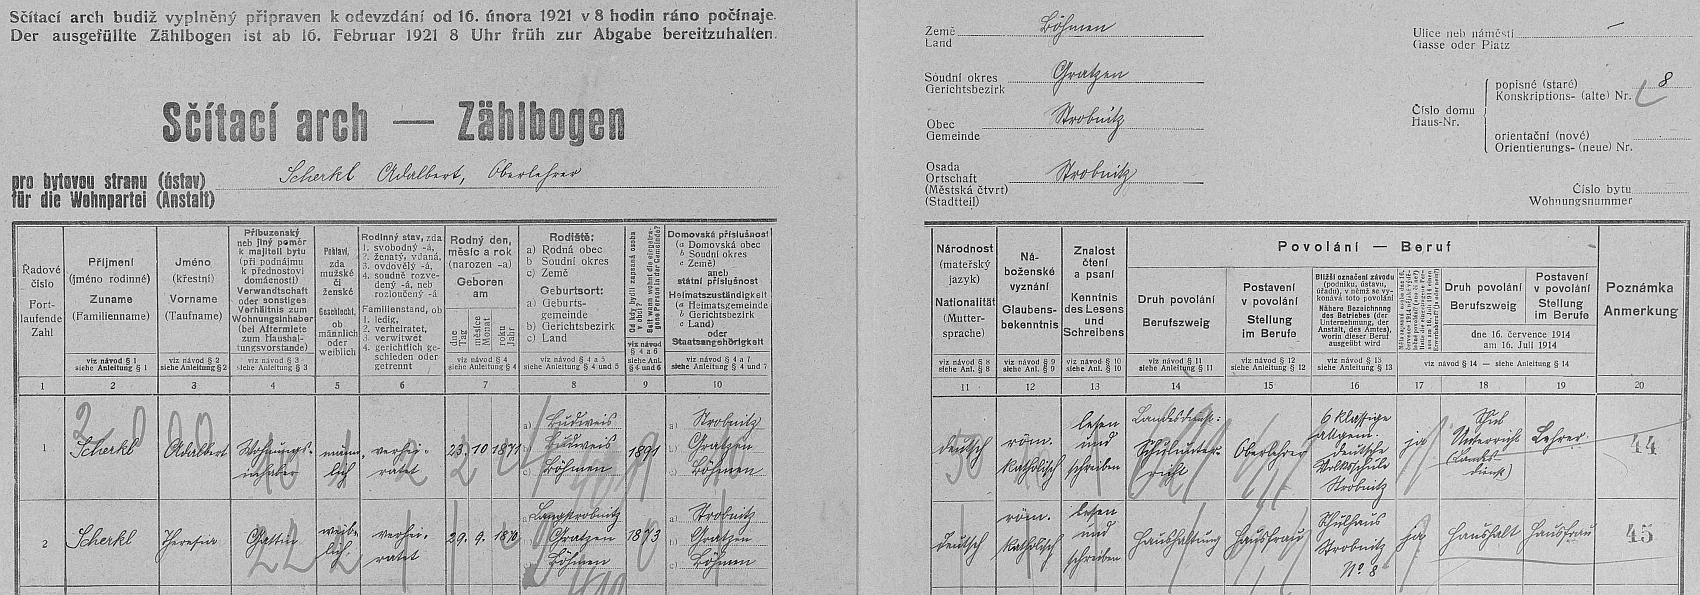 Sčítací arch budiž vyplněný připraven k odevzdání od 16. února 1921 v 8 hodin ráno počínaje.
Der ausgefüllte Zählbogen ist ab 16. Februar 1921 8 Uhr früh zur Abgabe bereitzuhalten.
Sčítací arch — Zählbogen
pro bytovou stranu (ústav)
für die Wohnpartei (Anstalt)
Scherkl Adalbert, Oberlehrer
Země
Land
Böhmen
Soudní okres
Gerichtsbezirk
Gratzen
Obec
Gemeinde
Strobnitz
Osada
Ortschaft
(Městská čtvrť)
(Stadtteil)
Strobnitz
Ulice neb náměstí
Gasse oder Platz
—
Číslo domu
Haus-Nr.
popisné (staré)
Konskriptions- (alte) Nr.
8
orientační (nové)
Orientierungs- (neue) Nr.
Číslo bytu
Wohnungsnummer
Řadové
číslo
Fort-
laufende
Zahl
Příjmení
(jméno rodinné)
Zuname
(Familienname)
viz návod § 1
siehe Anleitung § 1
Jméno
(křestní)
Vorname
(Taufname)
viz návod § 2
siehe Anleitung § 2
Příbuzenský
neb jiný poměr
k majiteli bytu
(při podnájmu
k přednostovi
domácnosti)
Verwandtschaft
oder sonstiges
Verhältnis zum
Wohnungsinhaber
(bei Aftermiete
zum Haushal-
tungsvorstande)
viz návod § 3
siehe Anleitung § 3
Pohlaví,
zda
mužské
či
ženské
Geschlecht,
ob
männlich
oder
weiblich
Rodinný stav, zda
1. svobodný -á,
2. ženatý, vdaná,
3. ovdovělý -á,
4. soudně rozve-
dený -á, neb
rozloučený -á
Familienstand, ob
1. ledig,
2. verheiratet,
3. verwitwet
4. gerichtlich ge-
schieden oder
getrennt
Rodný den,
měsíc a rok
(narozen -a)
Geboren
am
dne
Tag
měsíce
Monat
roku
Jahr
viz návod § 4
siehe Anleitung § 4
Rodiště:
a) Rodná obec
b) Soudní okres
c) Země
Geburtsort:
a) Geburts-
gemeinde
b) Gerichtsbezirk
c) Land
viz návod § 4 a 5
siehe Anleitung § 4 und 5
viz návod
§ 4 a 6
siehe Anl.
§ 4 und 6
Domovská příslušnost
(a Domovská obec
b Soudní okres
c Země)
aneb
státní příslušnost
Heimatszuständigkeit
(a Heimatsgemeinde
b Gerichtsbezirk
c Land)
oder
Staatsangehörigkeit
viz návod § 4 a 7
siehe Anleitung § 4 und 7
Národnost
(mateřský
jazyk)
Nationalität
(Mutter-
sprache)
viz návod § 8
siehe Anleitung § 8
Ná-
boženské
vyznání
Glaubens-
bekenntnis
viz návod § 9
siehe Anleitung § 9
Znalost
čtení
a psaní
Kenntnis
des Lesens
und
Schreibens
viz návod § 10
siehe Anleitung § 10
Povolání — Beruf
Druh povolání
Berufszweig
viz návod § 11
siehe Anleitung § 11
Postavení
v povolání
Stellung
im Berufe
viz návod § 12
siehe Anleitung § 12
Bližší označení závodu
(podniku, ústavu,
úřadu), v němž se vy-
konává toto povolání
Nähere Bezeichnung
des Betriebes (der
Unternehmung, der
Anstalt, des Amtes),
worin dieser Beruf
ausgeübt wird
viz návod § 13
siehe Anleitung § 13
Druh povolání
Berufszweig
Postavení
v povolání
Stellung
im Berufe
dne 16. července 1914
am 16. Juli 1914
viz návod § 14 — siehe Anleitung § 14
Poznámka
Anmerkung
1 2 3 4 5 6 7 8 9 10 11 12 13 14 15 16 17 18 19 20
1 Scherkl Adalbert Wohnungs-
inhaber
männ-
lich
verhei-
ratet
23. 10 1871
a) Budweis
b) Budweis
c) Böhmen
1891
a) Strobnitz
b) Gratzen
c) Böhmen
deutsch
röm.
katholisch
lesen
und
schreiben
Landesdienst:
Schulunter-
richt
Oberlehrer
6 klassige
allgem.
deutsche
Volksschule
Strobnitz
ja
Schul
Unterricht
(Landes
dienst)
Lehrer
44
2 Scherkl Theresia Gattin
weib-
lich
verhei-
ratet
29. 9. 1870
a) Langstrobnitz
b) Gratzen
c) Böhmen
1873
a) Strobnitz
b) Gratzen
c) Böhmen
deutsch
röm.
katholisch
lesen
und
schreiben
Haushaltung
Hausfrau
Schulhaus
Strobnitz
No 8
ja
Haushalt
Hausfrau
45